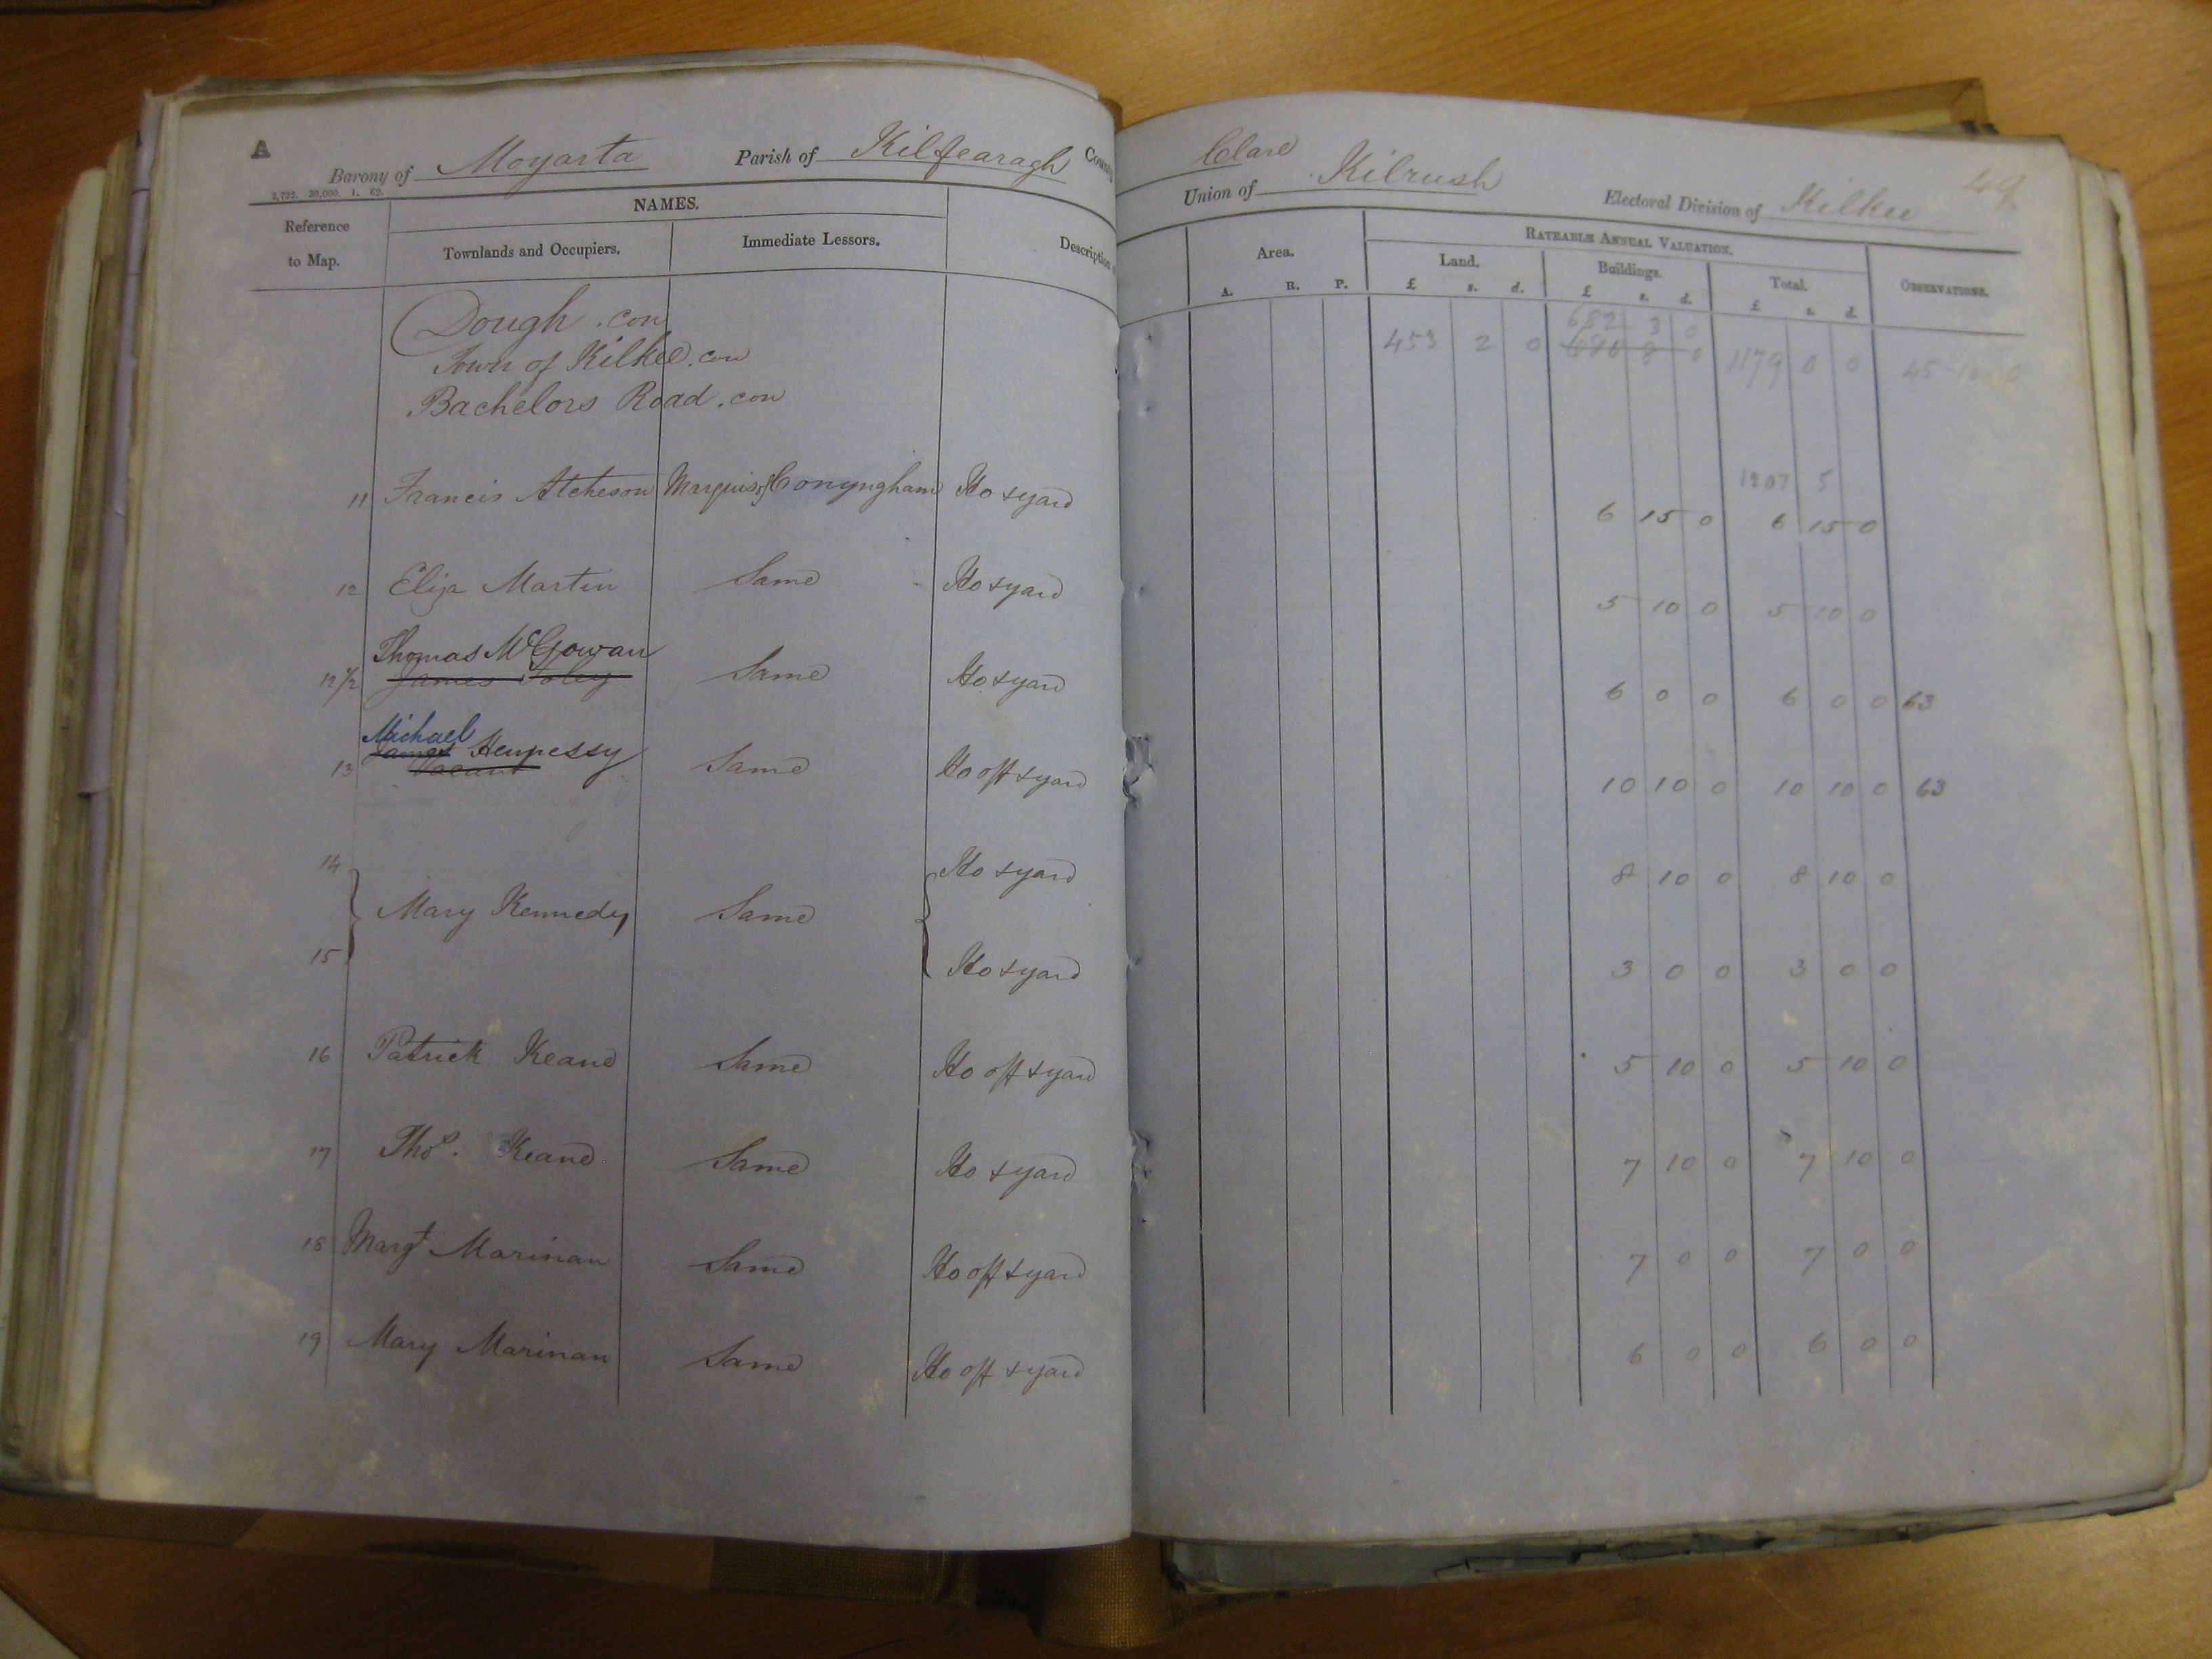 A
Barony of Moyarta Parish of Kilfearagh County
2,729. 20,000. 1. 62.
Reference to Map.
NAMES.
Townlands and Occupiers.
Immediate Lessors.
Description
Dough . con
Town of Kilkee . con
Bachelors Road . con
11 Francis Atcheson Marquis of Conyngham Ho & yard
12 Eliza Martin Same Ho & yard
Thomas McGowan
12 1/2 James Foley Same Ho & yard
Michael
James Hennessy
13 Vacant Same Ho off & yard
14 Ho & yard
Mary Kennedy Same
15 Ho & yard
16 Patrick Keane Same Ho off & yard
17 Thos. Keane Same Ho & yard
18 Margt Marinan Same Ho off & yard
19 Mary Marinan Same Ho off & yard
Clare
Union of Kilrush Electoral Division of Kilkee 49
Area.
A. R. P.
RATEABLE ANNUAL VALUATION.
Land. Buildings. Total.
£ s. d. £ s. d. £ s. d.
OBSERVATIONS.
682 3 0
453 2 0 696 8 0 1179 0 0 45-10-0
1207 5
6 15 0 6 15 0
5 10 0 5 10 0
6 0 0 6 0 0 63
10 10 0 10 10 0 63
8 10 0 8 10 0
3 0 0 3 0 0
5 10 0 5 10 0
7 10 0 7 10 0
7 0 0 7 0 0
6 0 0 6 0 0